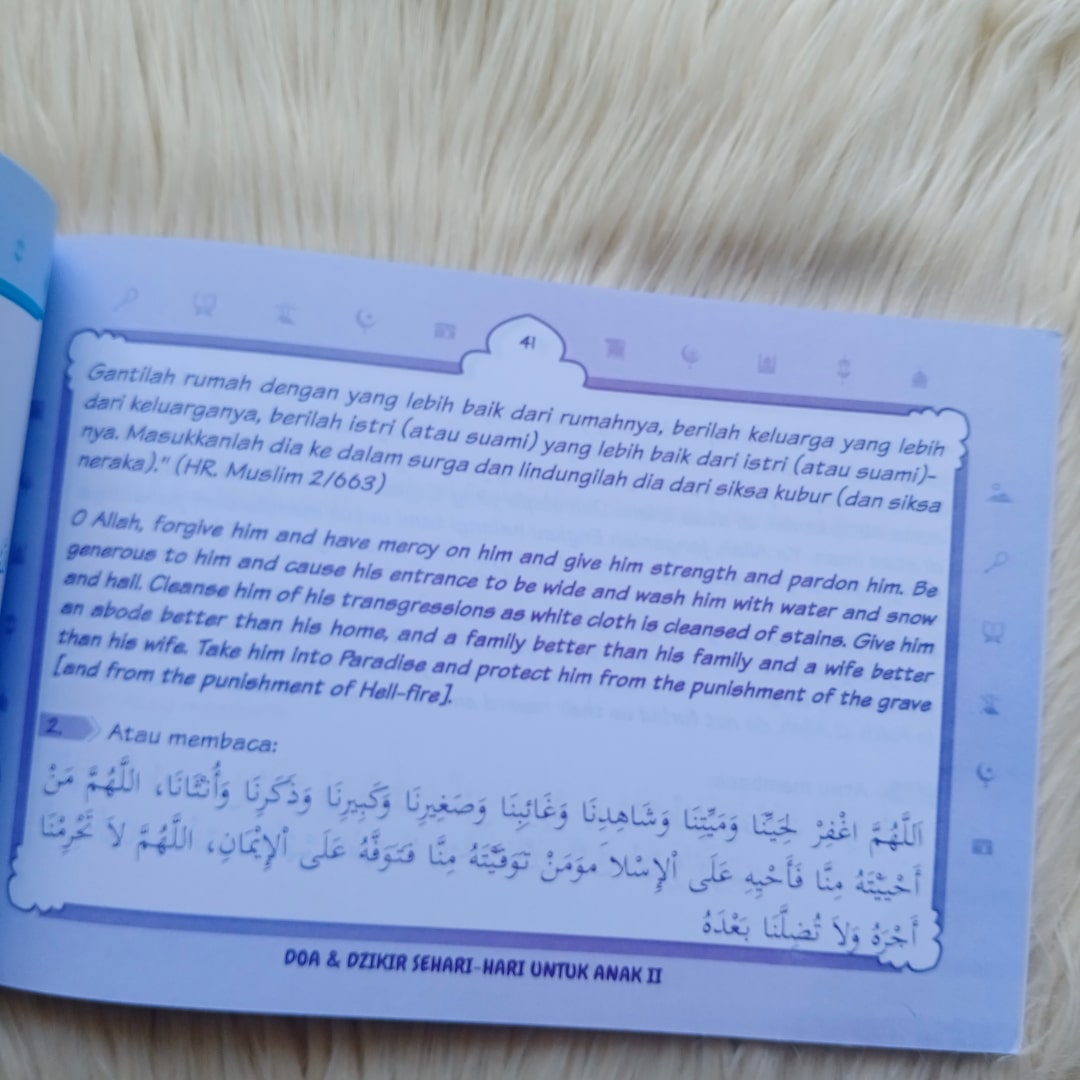 41
Gantilah rumah dengan yang lebih baik dari rumahnya, berilah keluarga yang lebih
dari keluarganya, berilah istri (atau suami) yang lebih baik dari istri (atau suami)-
nya. Masukkanlah dia ke dalam surga dan lindungilah dia dari siksa kubur (dan siksa
neraka)." (HR. Muslim 2/663)
O Allah, forgive him and have mercy on him and give him strength and pardon him. Be
generous to him and cause his entrance to be wide and wash him with water and snow
and hail. Cleanse him of his transgressions as white cloth is cleansed of stains. Give him
an abode better than his home, and a family better than his family and a wife better
than his wife. Take him into Paradise and protect him from the punishment of the grave
[and from the punishment of Hell-fire].
2. Atau membaca:
اَللَّهُمَّ اغْفِرْ لِحَيِّنَا وَمَيِّتِنَا وَشَاهِدِنَا وَغَائِبِنَا وَصَغِيرِنَا وَكَبِيرِنَا وَذَكَرِنَا وَأُنْثَانَا، اللَّهُمَّ مَنْ
أَحْيَيْتَهُ مِنَّا فَأَحْيِهِ عَلَى اْلإِسْلاَ مِوَمَنْ تَوَفَّيْتَهُ مِنَّا فَتَوَفَّهُ عَلَى اْلإِيْمَانِ، اللَّهُمَّ لاَ تَحْرِمْنَا
أَجْرَهُ وَلاَ تُضِلَّنَا بَعْدَهُ
DOA & DZIKIR SEHARI-HARI UNTUK ANAK II